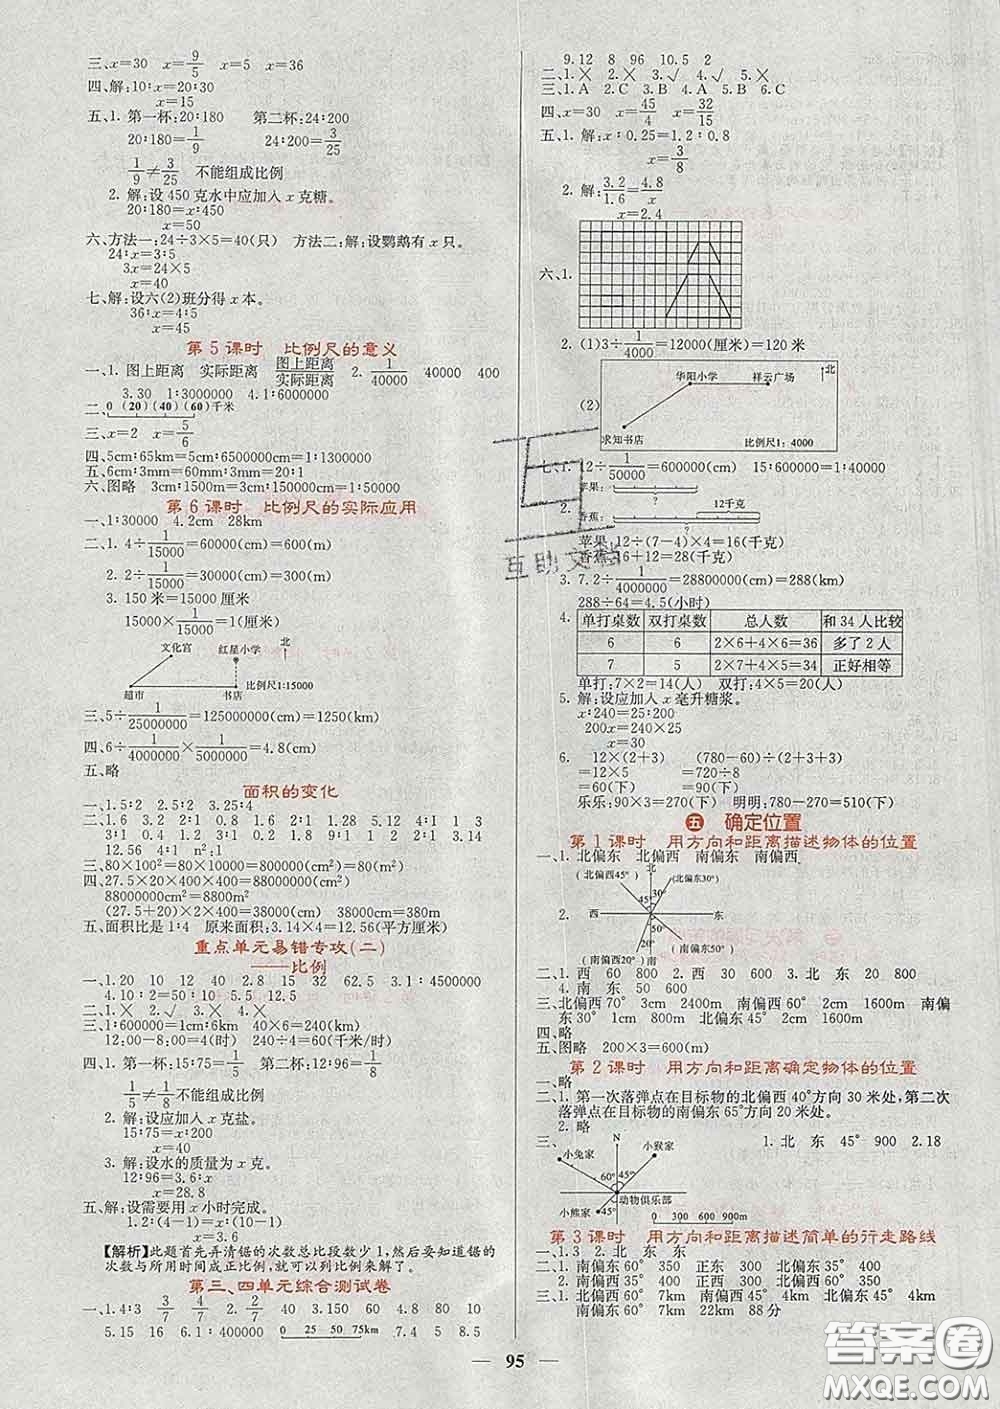 三、x=30　x=9/5　x=5　x=36
四、解:10∶x=20∶30
x=15
五、1. 第一杯:20∶180　第二杯:24∶200
20∶180=1/9　24∶200=3/25
1/9≠3/25　不能组成比例
2. 解:设450克水中应加入x克糖。
20∶180=x∶450
x=50
六、方法一:24÷3×5=40(只)　方法二:解:设鹦鹉有x只。
24∶x=3∶5
3x=24×5
x=40
七、解:设六(2)班分得x本。
36∶x=4∶5
x=45
第5课时　比例尺的意义
一、1. 图上距离　实际距离　图上距离/实际距离　2. 1/40000　40000　400
3. 30　4. 1∶6000000
二、0 (20) (40) (60)千米
三、x=2　x=5/6
四、5cm∶65km=5cm∶6500000cm=1∶1300000
五、6cm∶3mm=60mm∶3mm=20∶1
六、图略　3cm∶1500m=3cm∶150000cm=1∶50000
第6课时　比例尺的实际应用
一、1∶30000　4.2cm　28km
二、1. 4÷1/15000=60000(cm)=600(m)
2. 2÷1/15000=30000(cm)=300(m)
3. 150米=15000厘米
15000×1/15000=1(厘米)
文化宫　红星小学　北
超市　书店　比例尺1∶15000
三、5÷1/25000000=125000000(cm)=1250(km)
四、6÷1/4000000×1/5000000=4.8(cm)
五、略
面积的变化
一、1. 5∶2　2. 5∶2　3. 25∶4
二、1. 1.6　0.8　1.6　2∶1　2∶1　1.28　5.12　4∶1　4∶1　1　3
3∶1　3∶1　3.14　28.26　9∶1　9∶1　1　2　1∶2　3.14
12.56　4∶1　n²∶1
三、80×100²=80×10000=800000(cm²)=80(m²)
四、27.5×20×400×400=88000000(cm²)
88000000cm²=8800m²
(27.5+20)×2×400=38000(cm)　38000cm=380m
五、面积比是1∶4　原来面积:3.14×4=12.56(平方厘米)
重点单元易错专攻(二)
——比例
一、1. 20　10　40　12　2. 8　15　32　62.5　3. 1∶4500000
4. 10∶2=50∶10　2.5　12.5
二、1.×　2.√　3.×　4.×
三、1∶600000=1cm∶6km　40×6=240(km)
12:00-8:00=4(时)　240÷4=60(千米/时)
四、1. 第一杯:15∶75=1/5　第二杯:12∶96=1/8
1/5≠1/8不能组成比例
2. 解:设应加入x克盐。
15∶75=x∶200
x=40
3. 解:设水的质量为x克。
12∶96=3.6∶x
x=28.8
五、解:设需要用x小时完成。
1.2∶(4-1)=x∶(10-1)
x=3.6
【解析】此题首先弄清锯的次数总比段数少1,然后要知道锯的
次数与所用时间成正比例,就可以列比例来解了。
第三、四单元综合测试卷
一、1. 4∶3　3/4　4/7　2. 2/7　40　3. 110　4. 80　60　80　10
5. 15　16　6. 1∶400000　0 25 50 75km　7. 4　5　8. 5
9. 12　8　96　10. 5　2
二、1.×　2.×　3.√　4.√　5.×
三、1. A　2. C　3. B　4. A　5. B　6. C
四、x=30　x=45/4　x=32/15
五、1. 解:x∶0.25=1.2∶0.8
x=3/8
2. 解:3.2/1.6=4.8/x
x=2.4
六、1.
2. (1)3÷1/4000=12000(厘米)=120米
(2)
华阳小学　祥云广场　北
求知书店　比例尺1∶4000
七、1. 12÷1/50000=600000(cm)　15∶600000=1∶40000
2.
苹果:　?
香蕉:　12千克　?
苹果:12÷(7-4)×4=16(千克)
香蕉:16+12=28(千克)
3. 7.2÷1/4000000=28800000(cm)=288(km)
288÷64=4.5(小时)
4. 单打桌数　双打桌数　总人数　和34人比较
6　6　2×6+4×6=36　多了2人
7　5　2×7+4×5=34　正好相等
单打:7×2=14(人)　双打:4×5=20(人)
5. 解:设应加入x毫升糖浆。
x∶240=25∶200
200x=240×25
x=30
6. 12×(2+3)　(780-60)÷(2+3+3)
=12×5　=720÷8
=60(下)　=90(下)
乐乐:90×3=270(下)　明明:780-270=510(下)
五　确定位置
第1课时　用方向和距离描述物体的位置
一、1. 北偏东　北偏西　南偏东　南偏西
2.
(北偏西45°)　北　(北偏东30°)
45°　30°
西　东
50°
20°　(南偏东50°)
(南偏西20°)　南
二、1. 西　60　800　2. 西　30　600　3. 北　东　20　800
4. 南　东　50　600
三、北偏西70°　3cm　2400m　南偏西60°　2cm　1600m　南偏
东30°　1cm　800m　北偏东45°　2cm　1600m
四、略
五、图略　200×3=600(m)
第2课时　用方向和距离确定物体的位置
一、略
二、1. 第一次落弹点在目标物的北偏西40°方向30米处,第二次
落弹点在目标物的南偏东65°方向20米处。
2. 略
三、
小兔家　N　小猴家
60°　45°
动物俱乐部
小熊家　45°　0 300 600 900m
1. 北　东　45°　900　2. 18
第3课时　用方向和距离描述简单的行走路线
一、1. 3　2. 北　东　北　东
二、1. 南偏东60°　350　正东　300　北偏东35°　400
2. 南偏西35°　400　正西　300　北偏西60°　350
三、1. 北偏西60°　7km　南偏西45°　4km　北偏东45°　4km
南偏东60°　7km　22km　88分
95
互助文档
答案圈
MXQE.COM